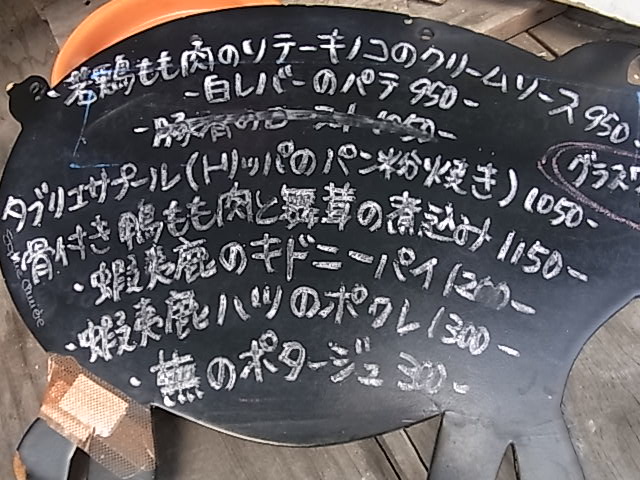 若鶏もも肉のソテーキノコのクリームソース 950-
-白レバーのパテ 950-
タブリエサプール(トリッパのパン粉焼き) 1050-
骨付き鴨もも肉と舞茸の煮込み 1150-
・蝦夷鹿のキドニーパイ 1200-
・蝦夷鹿ハツのポワレ 1300-
・蕪のポタージュ 300-
グラスワ